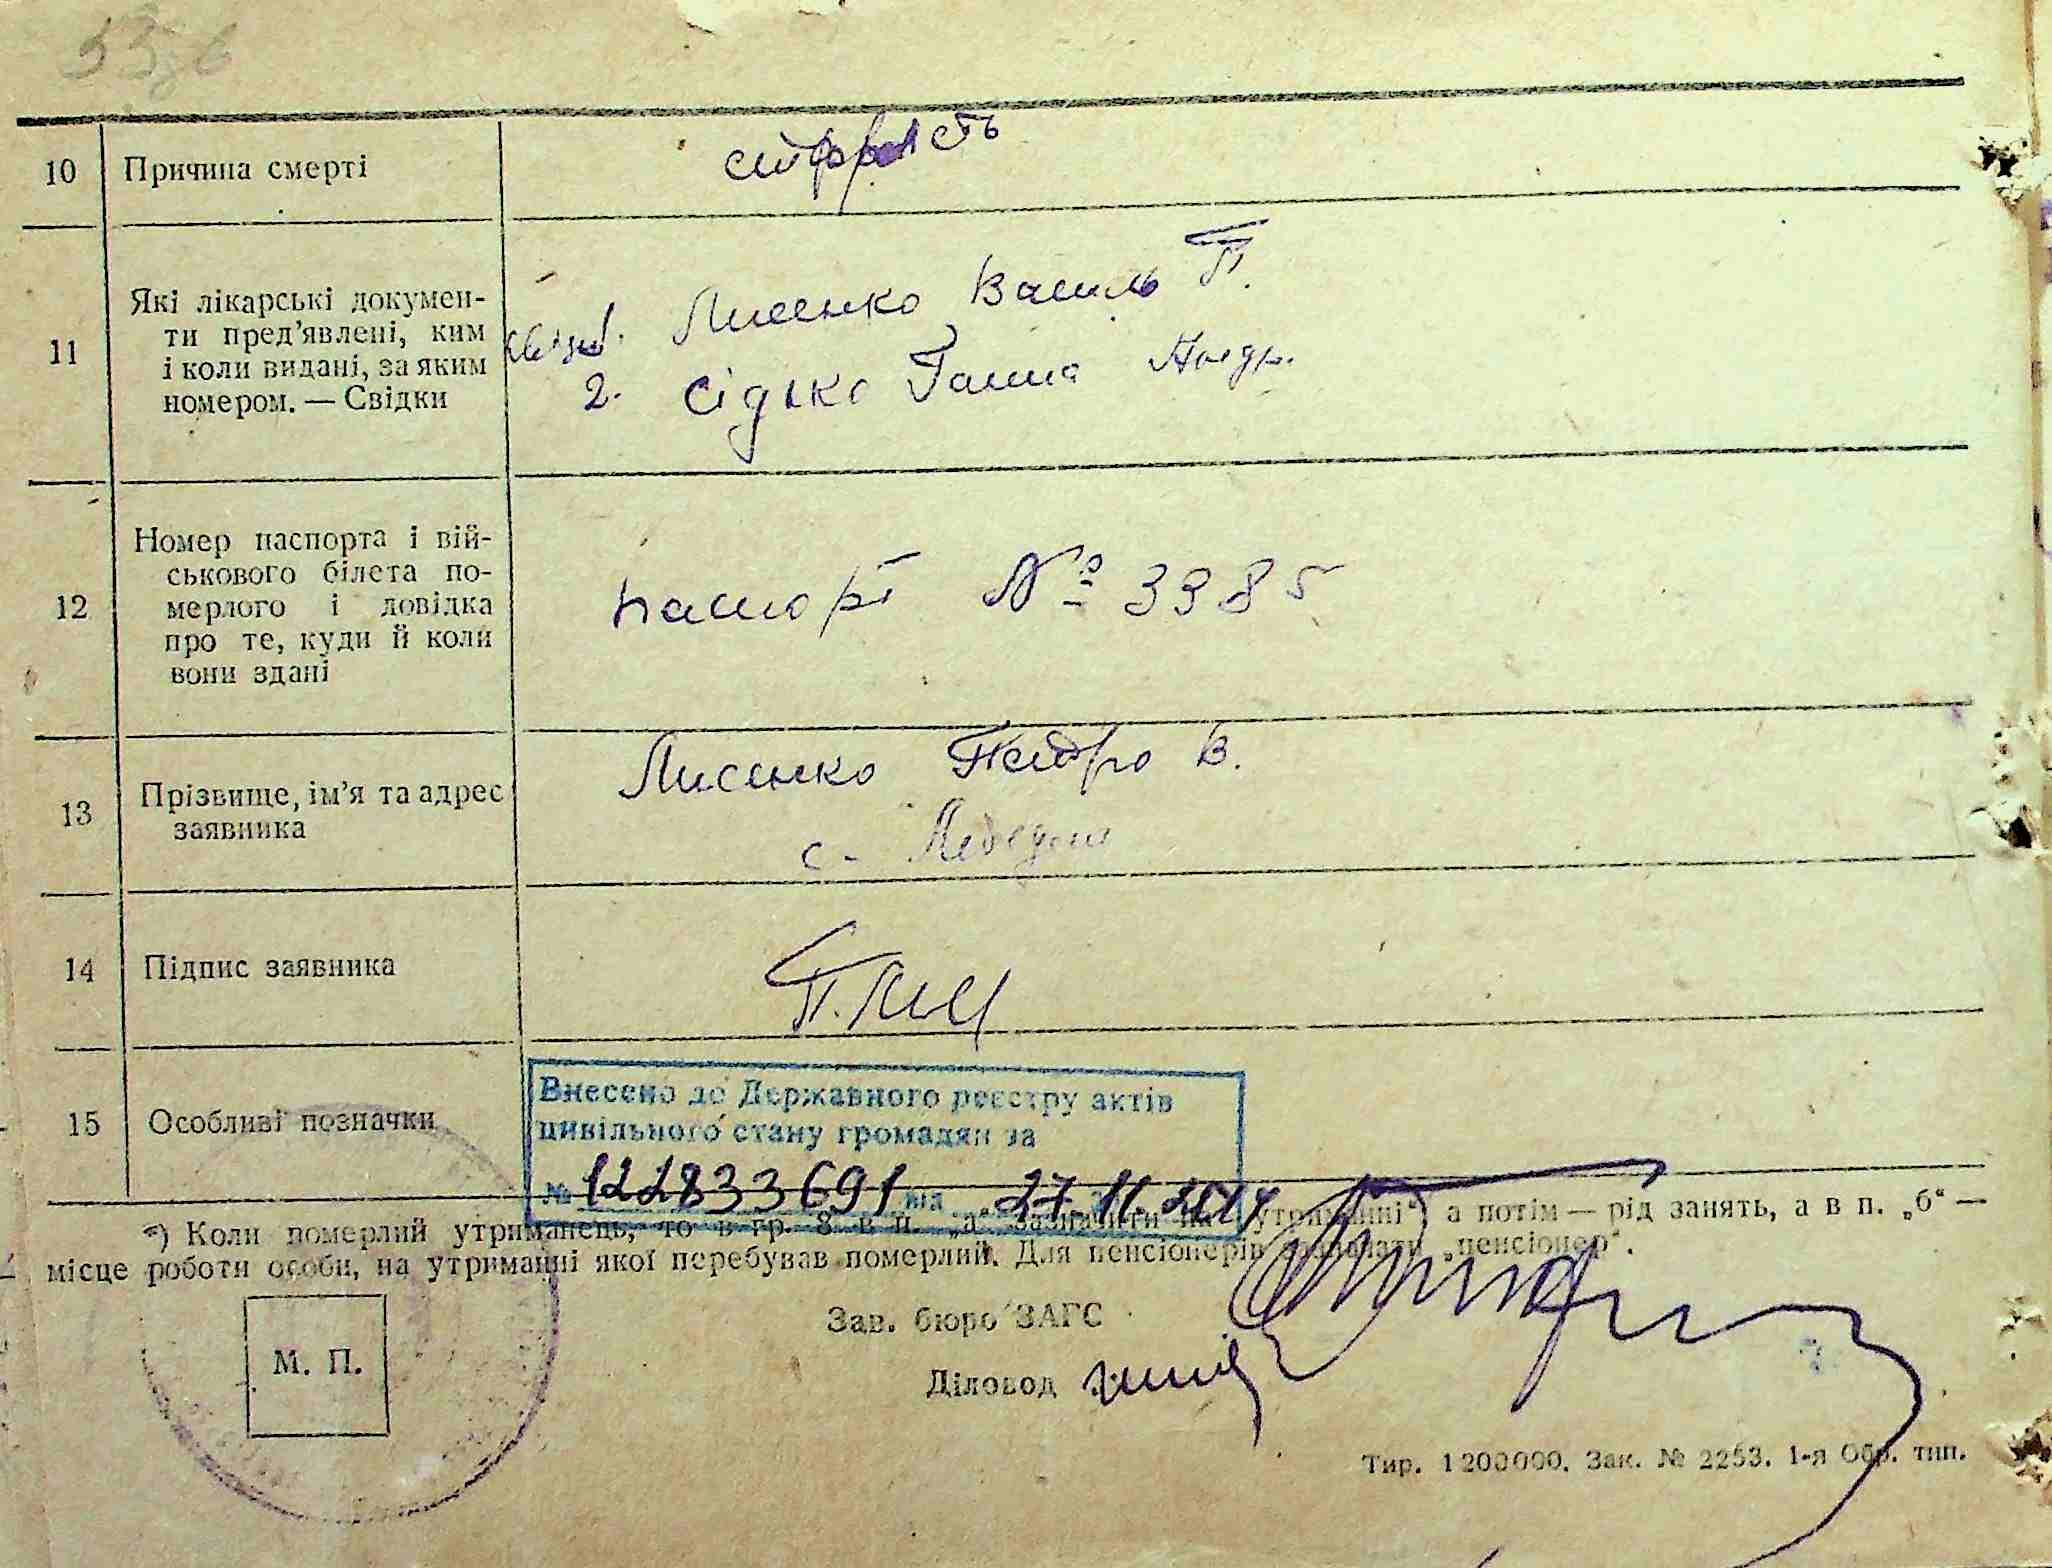 10 Причина смерті
старість
11 Які лікарські докумен-
ти пред’явлені, ким
і коли видані, за яким
номером. — Свідки
1. Лисенко Василь П.
2. Сідько Ганна
12 Номер паспорта і вій-
ськового білета по-
мерлого і довідка
про те, куди й коли
вони здані
паспорт № 3385
13 Прізвище, ім’я та адрес
заявника
Лисенко Пейдро В.
с.
14 Підпис заявника
П. Лис
15 Особливі позначки
Внесено до Державного реєстру актів
цивільного стану громадян за
№ 122833691 від „27. 11. 2017
*) Коли померлий утриманець, то в гр. 8 в п. „а“ зазначити на „утриманні“, а потім — рід занять, а в п. „б“ —
місце роботи особи, на утриманні якої перебував померлий. Для пенсіонерів зазначати „пенсіонер“.
Зав. бюро ЗАГС
М. П.
Діловод
Тир. 1200000. Зак. № 2253. 1-я Обр. тип.